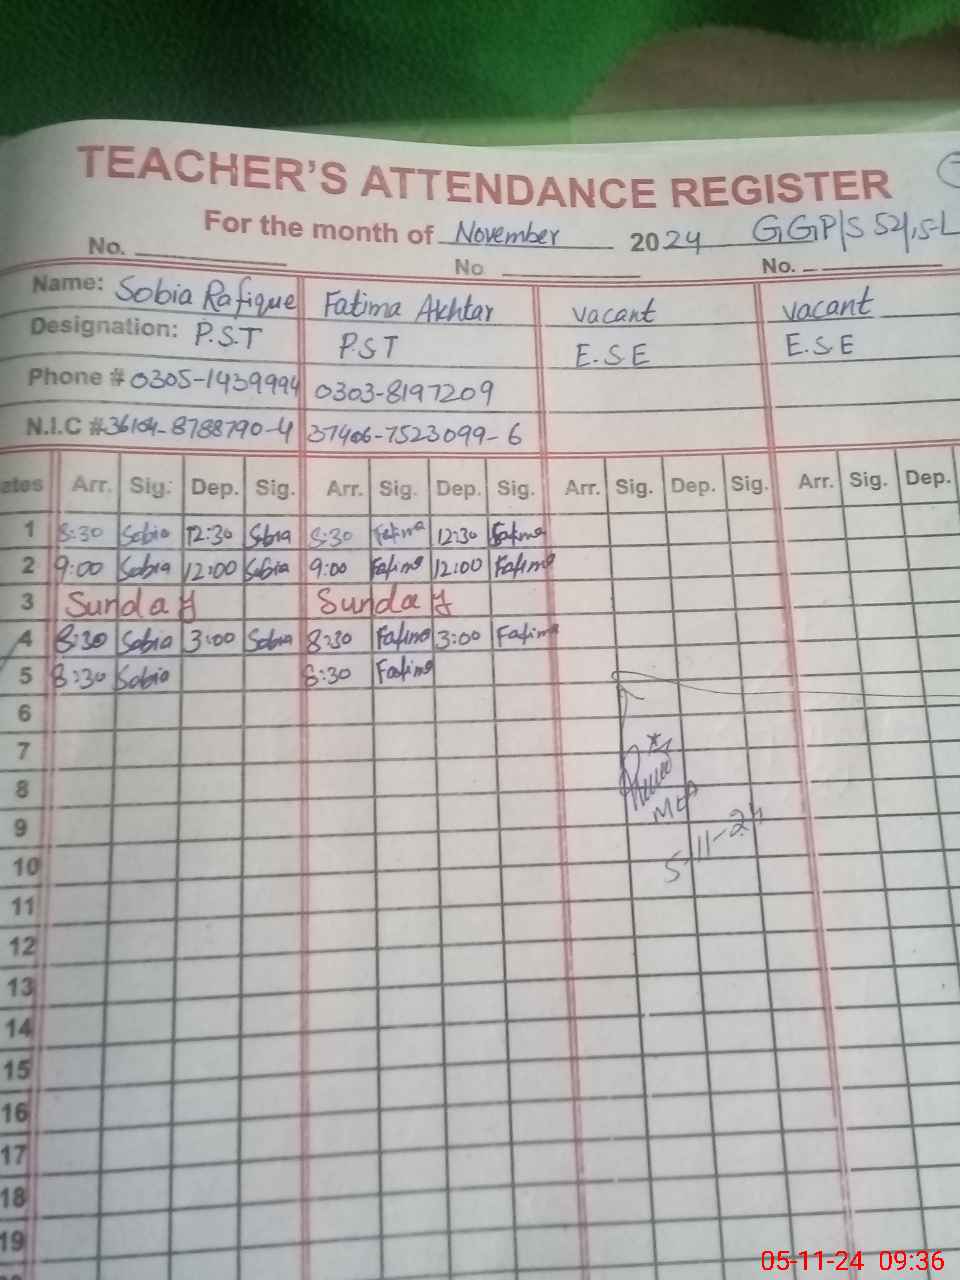 TEACHER'S ATTENDANCE REGISTER
For the month of November 2024 G.G.P/S 52/5-L
No. No No.
Name: Sobia Rafique Fatima Akhtar vacant vacant
Designation: P.S.T P.S.T E.S.E E.S.E
Phone # 0305-1439994 0303-8197209
N.I.C # 36104-8788790-4 37406-7523099-6
ates Arr. Sig. Dep. Sig. Arr. Sig. Dep. Sig. Arr. Sig. Dep. Sig. Arr. Sig. Dep.
1 8:30 Sobia 12:30 Sobia 8:30 Fatima 12:30 Fatima
2 9:00 Sobia 12:00 Sobia 9:00 Fatima 12:00 Fatima
3 Sunday Sunday
4 8:30 Sobia 3:00 Sobia 8:30 Fatima 3:00 Fatima
5 8:30 Sobia 8:30 Fatima
6
7
8
MEA
9
5-11-24
10
11
12
13
14
15
16
17
18
19
05-11-24 09:36